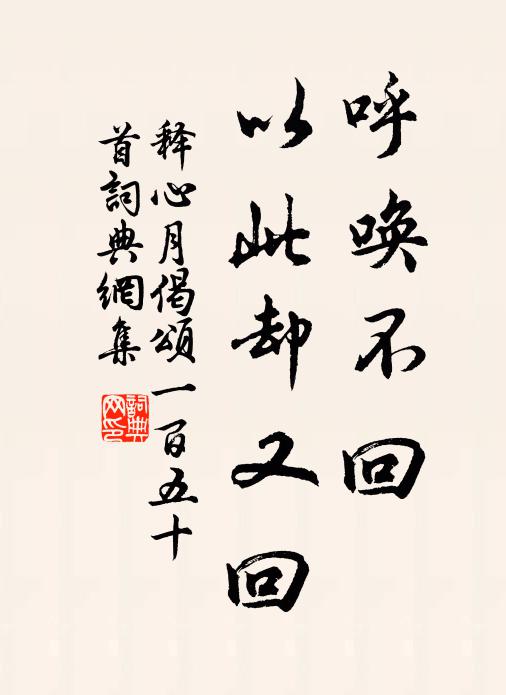 呼唤不回
以此却又回
释心月偈頌一百五十
首詞典網集
詞典网印